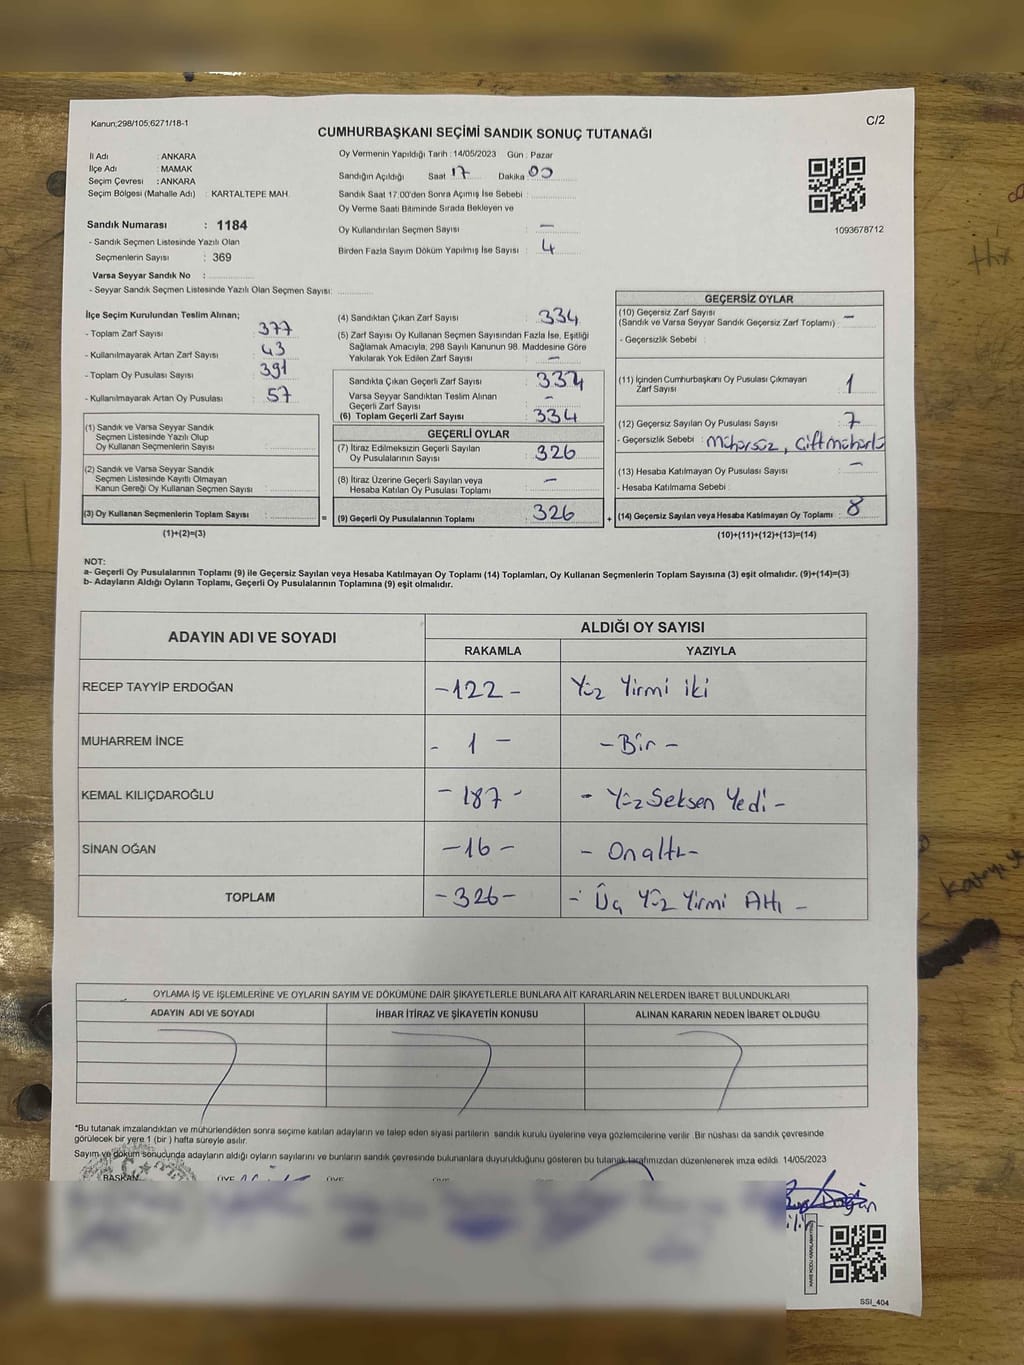 Kanun;298/105,6271/18-1
C/2
CUMHURBAŞKANI SEÇİMİ SANDIK SONUÇ TUTANAĞI
İl Adı : ANKARA
İlçe Adı : MAMAK
Seçim Çevresi : ANKARA
Seçim Bölgesi (Mahalle Adı) : KARTALTEPE MAH.
Sandık Numarası : 1184
- Sandık Seçmen Listesinde Yazılı Olan
Seçmenlerin Sayısı : 369
Varsa Seyyar Sandık No :
- Seyyar Sandık Seçmen Listesinde Yazılı Olan Seçmen Sayısı:
Oy Vermenin Yapıldığı Tarih : 14/05/2023 Gün : Pazar
Sandığın Açıldığı Saat 17 Dakika 00
Sandık Saat 17:00'den Sonra Açımış İse Sebebi :
Oy Verme Saati Bitiminde Sırada Bekleyen ve
Oy Kullandırılan Seçmen Sayısı : —
Birden Fazla Sayım Döküm Yapılmış İse Sayısı : 4
1093678712
İlçe Seçim Kurulundan Teslim Alınan;
- Toplam Zarf Sayısı : 377
- Kullanılmayarak Artan Zarf Sayısı : 43
- Toplam Oy Pusulası Sayısı : 391
- Kullanılmayarak Artan Oy Pusulası : 57
(1) Sandık ve Varsa Seyyar Sandık
Seçmen Listesinde Yazılı Olup
Oy Kullanan Seçmenlerin Sayısı :
(2) Sandık ve Varsa Seyyar Sandık
Seçmen Listesinde Kayıtlı Olmayan
Kanun Gereği Oy Kullanan Seçmen Sayısı :
(3) Oy Kullanan Seçmenlerin Toplam Sayısı :
(1)+(2)=(3)
(4) Sandıktan Çıkan Zarf Sayısı : 334
(5) Zarf Sayısı Oy Kullanan Seçmen Sayısından Fazla İse, Eşitliği
Sağlamak Amacıyla, 298 Sayılı Kanunun 98. Maddesine Göre
Yakılarak Yok Edilen Zarf Sayısı : —
Sandıkta Çıkan Geçerli Zarf Sayısı : 334
Varsa Seyyar Sandıktan Teslim Alınan
Geçerli Zarf Sayısı : -
(6) Toplam Geçerli Zarf Sayısı : 334
GEÇERLİ OYLAR
(7) İtiraz Edilmeksizin Geçerli Sayılan
Oy Pusulalarının Sayısı : 326
(8) İtiraz Üzerine Geçerli Sayılan veya
Hesaba Katılan Oy Pusulası Toplamı : —
= (9) Geçerli Oy Pusulalarının Toplamı : 326 +
GEÇERSİZ OYLAR
(10) Geçersiz Zarf Sayısı : —
(Sandık ve Varsa Seyyar Sandık Geçersiz Zarf Toplamı)
- Geçersizlik Sebebi :
(11) İçinden Cumhurbaşkanı Oy Pusulası Çıkmayan
Zarf Sayısı : 1
(12) Geçersiz Sayılan Oy Pusulası Sayısı : 7
- Geçersizlik Sebebi : Mühürsüz, Çift mühürlü
(13) Hesaba Katılmayan Oy Pusulası Sayısı : —
- Hesaba Katılmama Sebebi :
(14) Geçersiz Sayılan veya Hesaba Katılmayan Oy Toplamı : 8
(10)+(11)+(12)+(13)=(14)
NOT:
a- Geçerli Oy Pusulalarının Toplamı (9) ile Geçersiz Sayılan veya Hesaba Katılmayan Oy Toplamı (14) Toplamları, Oy Kullanan Seçmenlerin Toplam Sayısına (3) eşit olmalıdır. (9)+(14)=(3)
b- Adayların Aldığı Oyların Toplamı, Geçerli Oy Pusulalarının Toplamına (9) eşit olmalıdır.
ADAYIN ADI VE SOYADI ALDIĞI OY SAYISI
RAKAMLA YAZIYLA
RECEP TAYYİP ERDOĞAN -122- Yüz Yirmi iki
MUHARREM İNCE - 1 - -Bir-
KEMAL KILIÇDAROĞLU -187- - Yüz Seksen Yedi -
SİNAN OĞAN -16- - On altı -
TOPLAM -326- - Üç Yüz Yirmi Altı -
OYLAMA İŞ VE İŞLEMLERİNE VE OYLARIN SAYIM VE DÖKÜMÜNE DAİR ŞİKAYETLERLE BUNLARA AİT KARARLARIN NELERDEN İBARET BULUNDUKLARI
ADAYIN ADI VE SOYADI İHBAR İTİRAZ VE ŞİKAYETİN KONUSU ALINAN KARARIN NEDEN İBARET OLDUĞU
*Bu tutanak imzalandıktan ve mühürlendikten sonra seçime katılan adayların ve talep eden siyasi partilerin sandık kurulu üyelerine veya gözlemcilerine verilir. Bir nüshası da sandık çevresinde
görülecek bir yere 1 (bir ) hafta süreyle asılır.
Sayım ve döküm sonucunda adayların aldığı oyların sayılarını ve bunların sandık çevresinde bulunanlara duyurulduğunu gösteren bu tutanak tarafımızdan düzenlenerek imza edildi. 14/05/2023
BAŞKAN ÜYE ÜYE
SSI_404